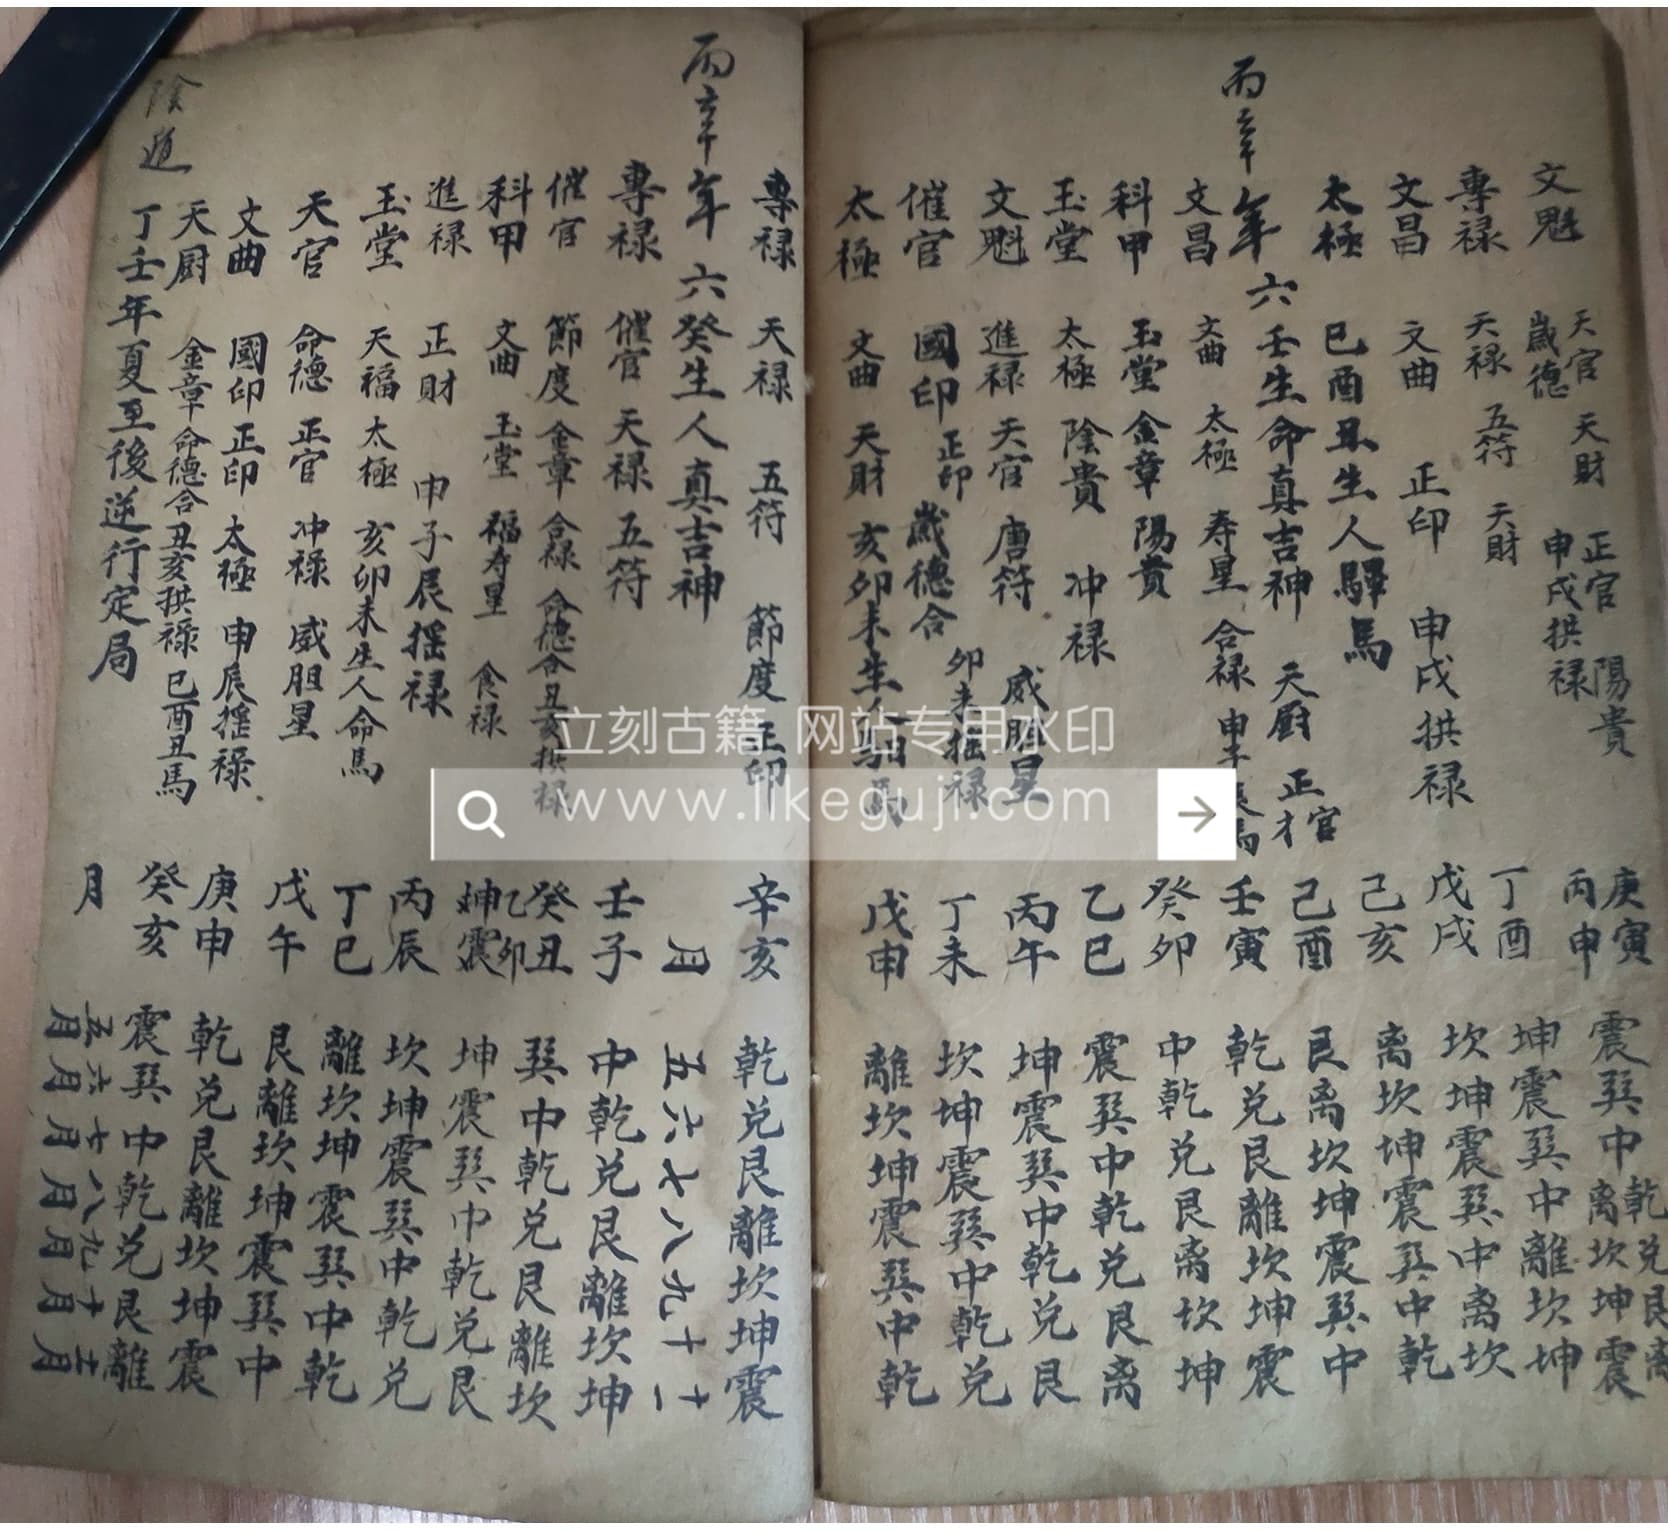 文魁 天官 天財 正官 陽貴 庚寅 震巽中乾兌艮离
歲德 申戌拱禄 丙申 离坎坤震
專禄 天禄 五符 天財 丁酉 坤震巽中離坎坤
文昌 文曲 正印 申戌拱禄 戊戌 坎坤震巽中离坎
太極 巳酉丑生人驛馬 己亥 离坎坤震巽中乾
丙辛年 六壬生命真吉神 天厨 正官 才 己酉 艮离坎坤震巽中
文昌 文曲 太極 寿星 合禄 申子辰馬 壬寅 乾兌艮離坎坤震
科甲 玉堂 金章 陽貴 癸卯 中乾兌艮离坎坤
玉堂 太極 陰貴 冲禄 乙巳 震巽中乾兌艮离
文魁 進禄 天官 唐符 威胆星 丙午 坤震巽中乾兌艮
催官 國印 正印 歲德合 卯未揺禄 丁未 坎坤震巽中乾兌
太極 文曲 天財 亥卯未生人馹馬 戊申 離坎坤震巽中乾
專禄 天禄 五符 節度 正印 辛亥 乾兌艮離坎坤震
丙辛年 六癸生人真吉神 月 五六七八九十十一
專禄 催官 天禄 五符 壬子 中乾兌艮離坎坤
催官 節度 金章 合禄 命德合丑亥拱禄 癸丑 巽中乾兌艮離坎
科甲 文曲 玉堂 福寿星 食禄 乙卯 坤震 坤震巽中乾兌艮
進禄 正財 申子辰揺禄 丙辰 坎坤震巽中乾兌
玉堂 天福 太極 亥卯未生人命馬 丁巳 離坎坤震巽中乾
天官 命德 正官 冲禄 威胆星 戊午 艮離坎坤震巽中
文曲 國印 正印 太極 申辰揺禄 庚申 乾兌艮離坎坤震
天厨 金章 命德合丑亥拱禄 巳酉丑馬 癸亥 震巽中乾兌艮離
陰遁 丁壬年夏至後逆行定局 月 五月六月七月八月九月十月十一月
立刻古籍 网站专用水印
www.likeguji.com